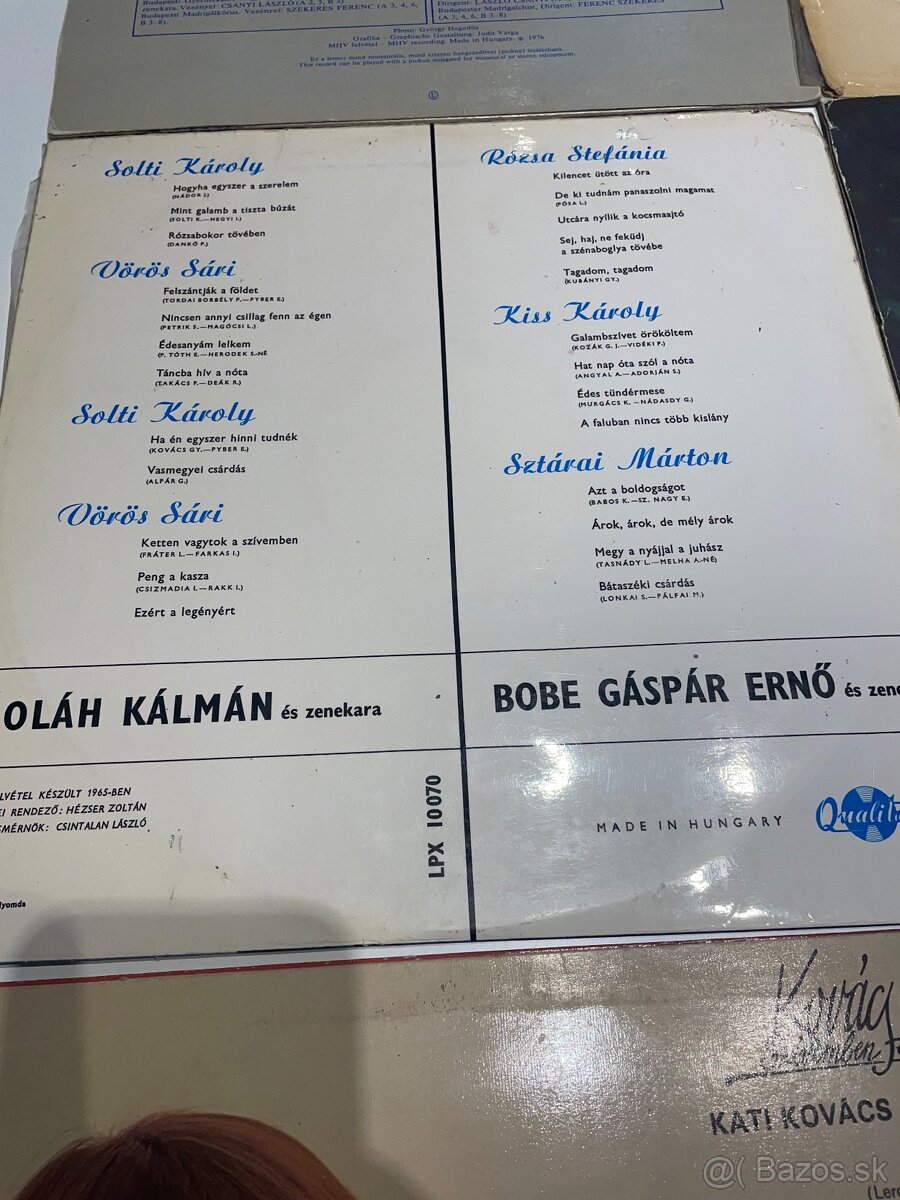 Budapesti
zenekara. Vezényel: CSÁNYI LÁSZLÓ (A 2, 5, B 2)
Budapesti Madrigálkórus. Vezényel: SZEKERES FERENC (A 3, 4, 6,
B 3–8).
Dirigent: LÁSZLÓ
Budapester Madrigalchor, Dirigent: FERENC SZEKERES
(A 3, 4, 6, B 3–8)
Photo: György Hegedűs
Grafika – Graphische Gestaltung: Judit Varga
MHV felvétel – MHV recording. Made in Hungary. ℗ 1976
Ez a lemez mind monaurális, mind sztereo hangszedővel (pickup) lejátszható.
This record can be played with a pickup designed for monaural or stereo equipment.
Solti Károly
Hogyha egyszer a szerelem
(NÁDOR J.)
Mint galamb a tiszta búzát
(SOLTI K.—HEGYI I.)
Rózsabokor tövében
(DANKÓ P.)
Vörös Sári
Felszántják a földet
(TORDAI BORBÉLY P.—PYBER E.)
Nincsen annyi csillag fenn az égen
(PETRIK S.—MAGÓCSI L.)
Édesanyám lelkem
(P. TÓTH E.—HERODEK S.-NÉ
Táncba hív a nóta
(TAKÁCS P.—DEÁK R.)
Solti Károly
Ha én egyszer hinni tudnék
(KOVÁCS GY.—PYBER E.)
Vasmegyei csárdás
(ALPÁR G.)
Vörös Sári
Ketten vagytok a szívemben
(FRÁTER L.—FARKAS I.)
Peng a kasza
(CSIZMADIA I.—RAKK I.)
Ezért a legényért
Rózsa Stefánia
Kilencet ütött az óra
De ki tudnám panaszolni magamat
(PÓSA L.)
Utcára nyílik a kocsmaajtó
Sej, haj, ne feküdj
a szénaboglya tövébe
Tagadom, tagadom
(KUBÁNYI GY.)
Kiss Károly
Galambszívet örököltem
(KOZÁK G. J.—VIDÉKI P.)
Hat nap óta szól a nóta
(ANGYAL A.—ADORJÁN S.)
Édes tündérmese
(MURGÁCS K.—NÁDASDY G.)
A faluban nincs több kislány
Sztárai Márton
Azt a boldogságot
(BABOS K.—SZ. NAGY E.)
Árok, árok, de mély árok
Megy a nyájjal a juhász
(TASNÁDY L.—MELHA A.-NÉ)
Bátaszéki csárdás
(LONKAI S.—PÁLFAI M.)
OLÁH KÁLMÁN és zenekara
BOBE GÁSPÁR ERNŐ és zene
LVÉTEL KÉSZÜLT 1965-BEN
EI RENDEZŐ: HÉZSER ZOLTÁN
SMÉRNÖK: CSINTALAN LÁSZLÓ
LPX 10070
MADE IN HUNGARY
Qualit
lyomda
Kovác
KATI KOVÁCS
(Lerc
@( Bazos.sk